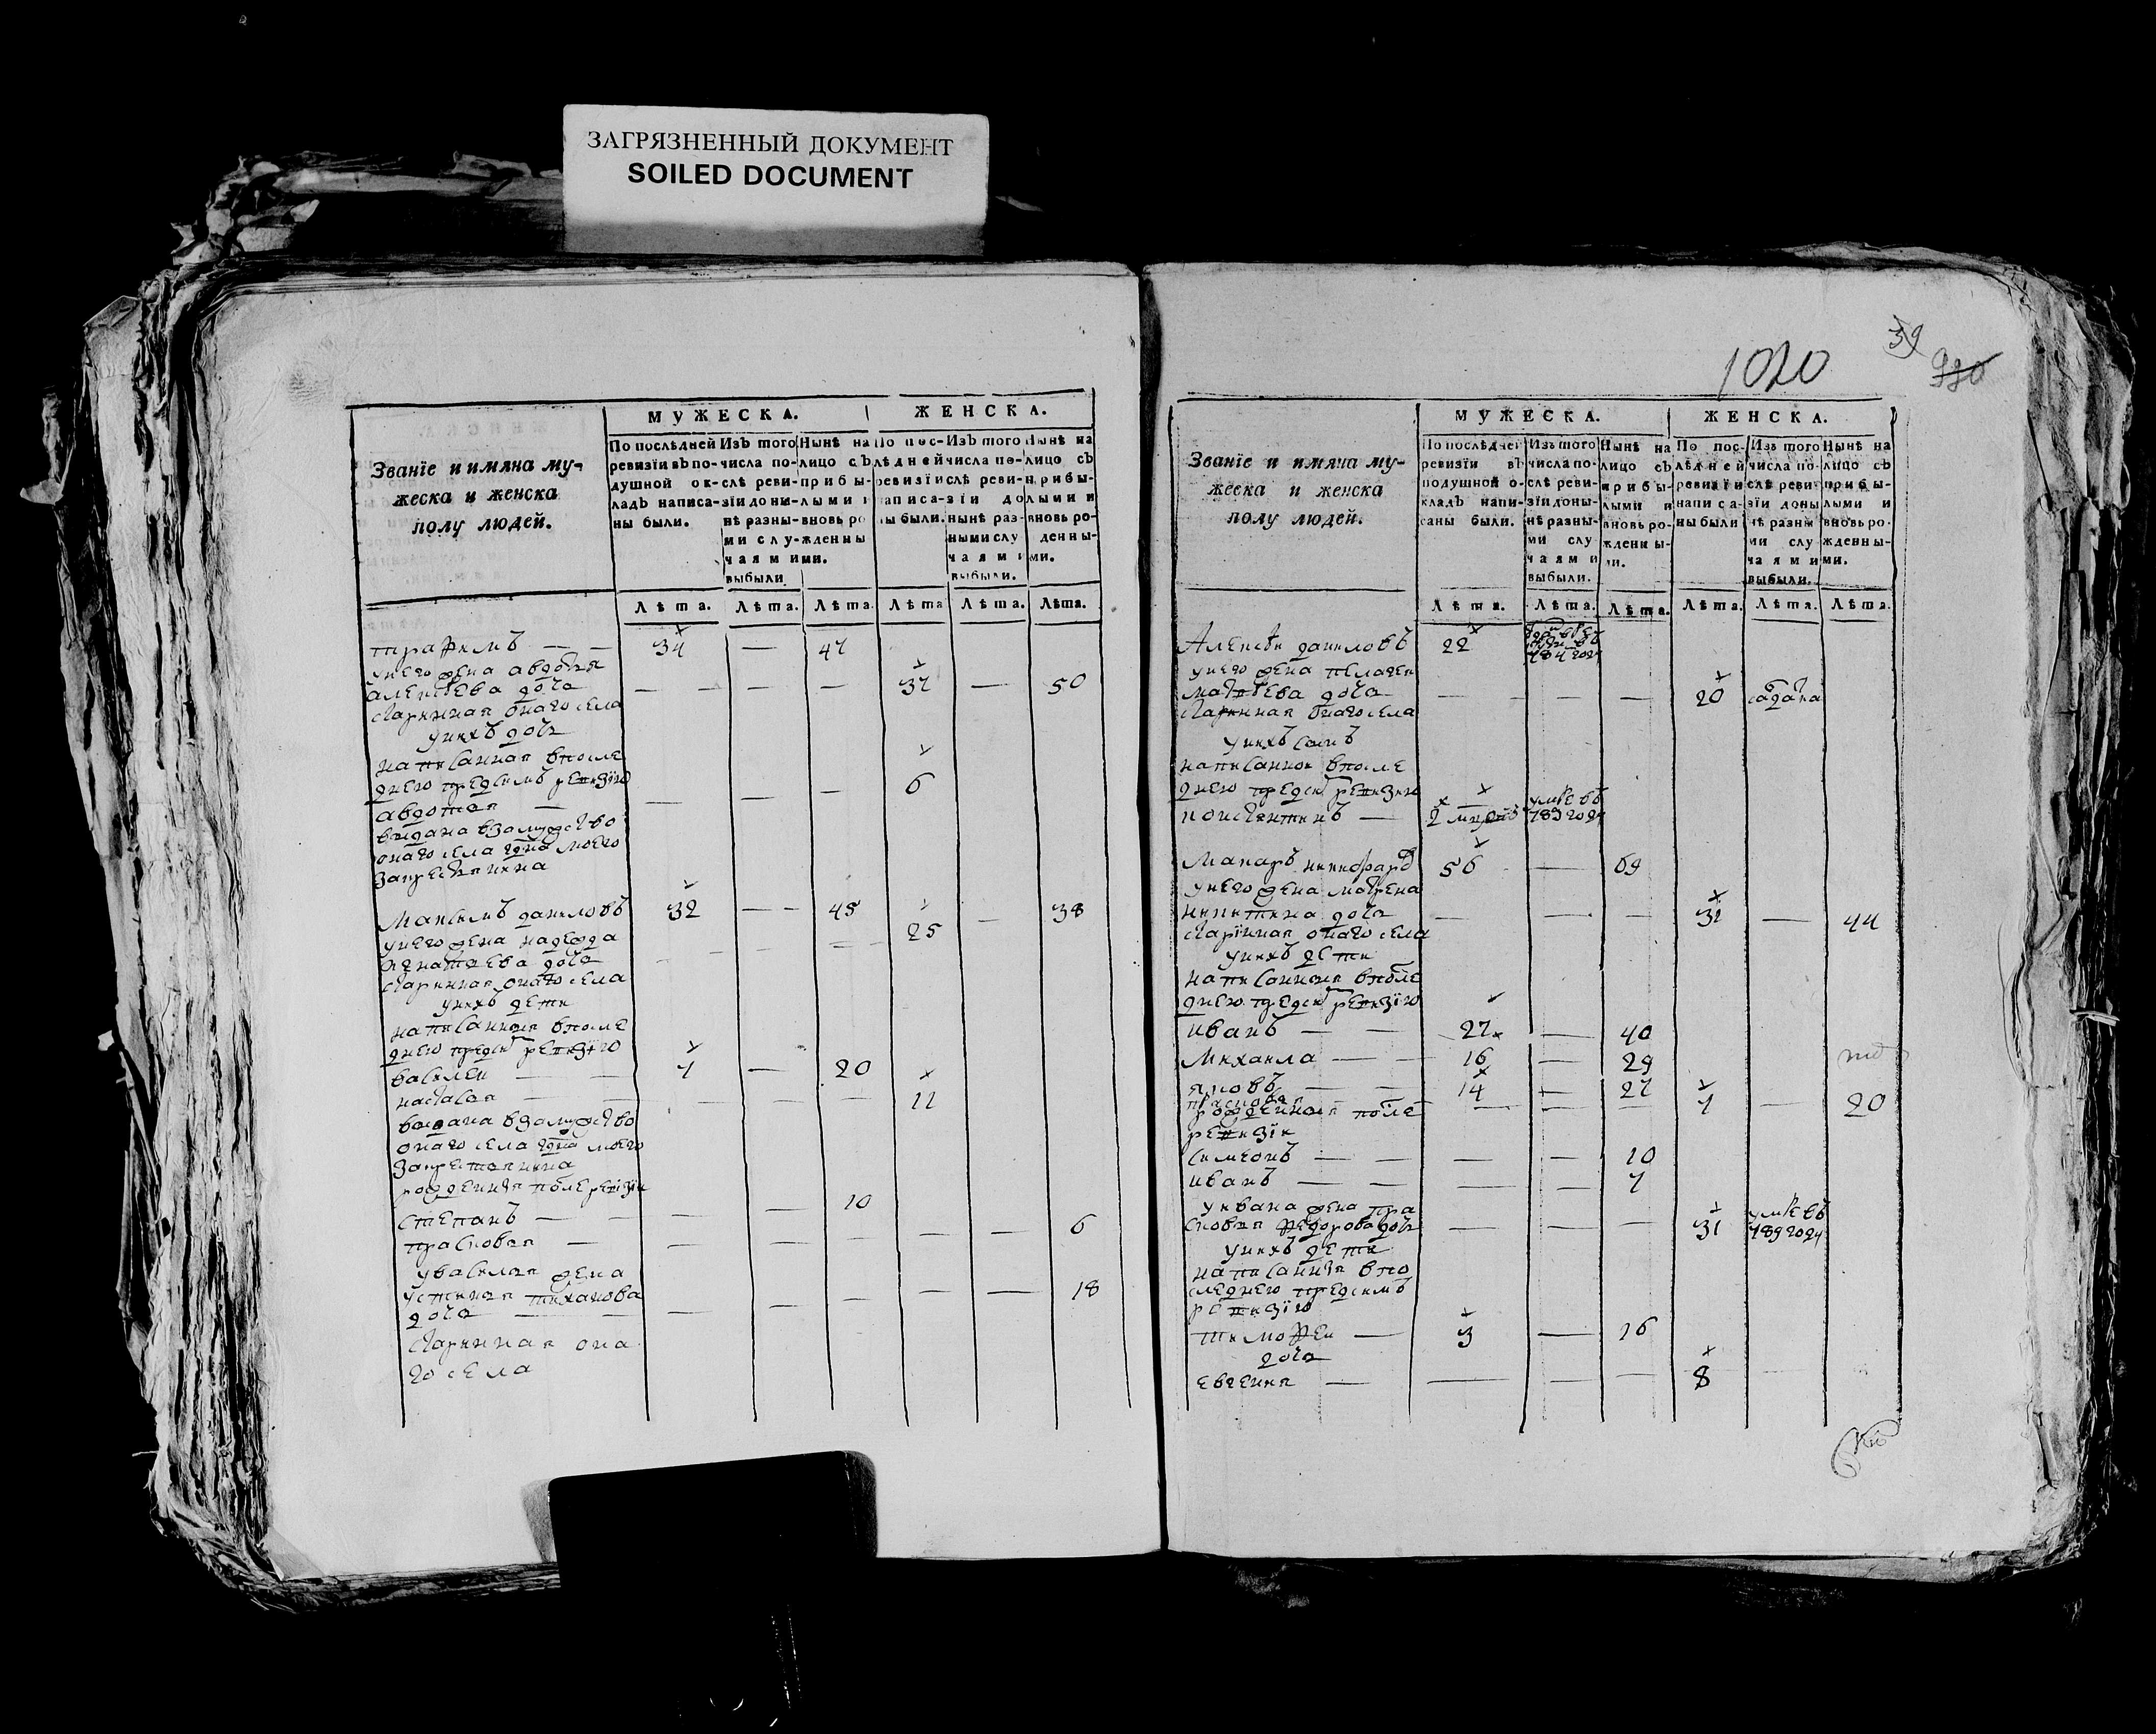 ЗАГРЯЗНЕННЫЙ ДОКУМЕНТ
SOILED DOCUMENT
Званїе и имяна му-
жеска и женска
полу людей.
МУЖЕСКА.
ЖЕНСКА.
По последней ревизїи въ подушной окладъ написаны были.
Изъ того числа послѣ ревизїи донынѣ разными случаями выбыли
Нынѣ на лицо съ прибылыми и вновь рожденными.
По последней ревизїи написаны были.
Изъ того числа послѣ ревизїи до нынѣ разными случаями выбыли.
Нынѣ на лицо съ прибылыми и вновь рожденными.
Лѣта. Лѣта. Лѣта. Лѣта Лѣта. Лѣта.
— — 34 — 47
унего жена авдотья
алексѣева дочь — — — — 37 — 50
старинная онаго села
унихъ дочь
написанная впосле
днею пред симъ ревизїю
авдотья — — — 6
выдана взамужство
онаго села
Максимъ даниловъ 32 — — 45
унего жена надежда 25 — 38
игнатьева дочь
старинная онаго села
унихъ дети
написанныя впосле
днею пред симъ ревизїю
василеи — — 7 — 20
настасья — — — — — 11
выдана взамужство
онаго села
рожденныя после ревизїи
степанъ — — — — 10
прасковья — — — — — — 6
увасилья жена
устинья тиханова
дочь — — — — — — 18
старинная она
го села
1020
39
990
Званїе и имяна му-
жеска и женска
полу людей.
МУЖЕСКА.
ЖЕНСКА.
По последней ревизїи въ подушной окладъ написаны были.
Изъ того числа послѣ ревизїи донынѣ разными случаями выбыли.
Нынѣ на лицо съ прибылыми и вновь рожденными.
По последней ревизїи написаны были
Изъ того числа послѣ ревизїи донынѣ разными случаями выбыли.
Нынѣ на лицо съ прибылыми и вновь рожденными.
Лѣта. Лѣта. Лѣта. Лѣта. Лѣта. Лѣта.
Алексѣи даниловъ 22
унего жена пелагея
матвѣева дочь — — — 20
старинная онаго села
унихъ сынъ
написанной впосле
днею пред симъ ревизїи
констентинъ — 2 умре въ 789 году
Макаръ 56 — 69
унего жена матрена
никитина дочь — — — 32 — 44
старинная онаго села
унихъ дети
написанныя впосле
днею пред симъ ревизїю
иванъ — — 27 — 40
Михаила — — 16 — 29
яковъ — — 14 — 27
прасковья — — — 7 — 20
рожденныя после
ревизїи
симеонъ — — — — 10
иванъ — — — — 7
уивана жена пра
сковья федорова дочь — — — 31 умре въ 789 году
унихъ дети
написанныя впо
следнею пред симъ
ревизїю
тимофеи — 3 — 16
дочь
евгения — — — — 8